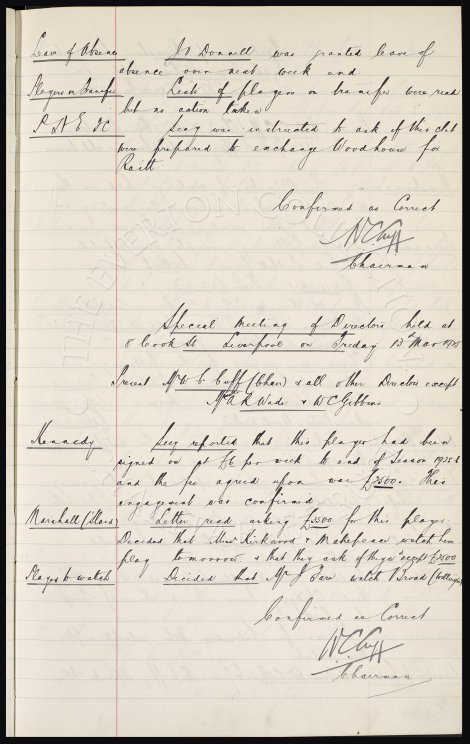 Leave of Absence J O Donnell was granted leave of
absence over next week end
Players on Transfer Lists of players on transfer were read
but no action taken
P N E FC Secy was instructed to ask if this club
were prepared to exchange Woodhouse for
Raitt
Confirmed as Correct
W C Cuff
Chairman
Special Meeting of Directors held at
8 Cook St Liverpool on Friday 13th Mar 1925
Present Mr W C Cuff (Chair) & all other Directors except
Mr A R Wade & W C Gibbins
Kennedy Secy reported that this player had been
signed on at £6 per week to end of Season 1925
and the fee agreed upon was £3500. This
engagement was confirmed
Marshall Letter read asking £5500 for this player
Decided that Messrs Kirkwood & Makepeace watch him
play tomorrow & that they ask if they wd accept
Player to watch Decided that Mr J watch Broad
Confirmed as Correct
W.C. Cuff
Chairman